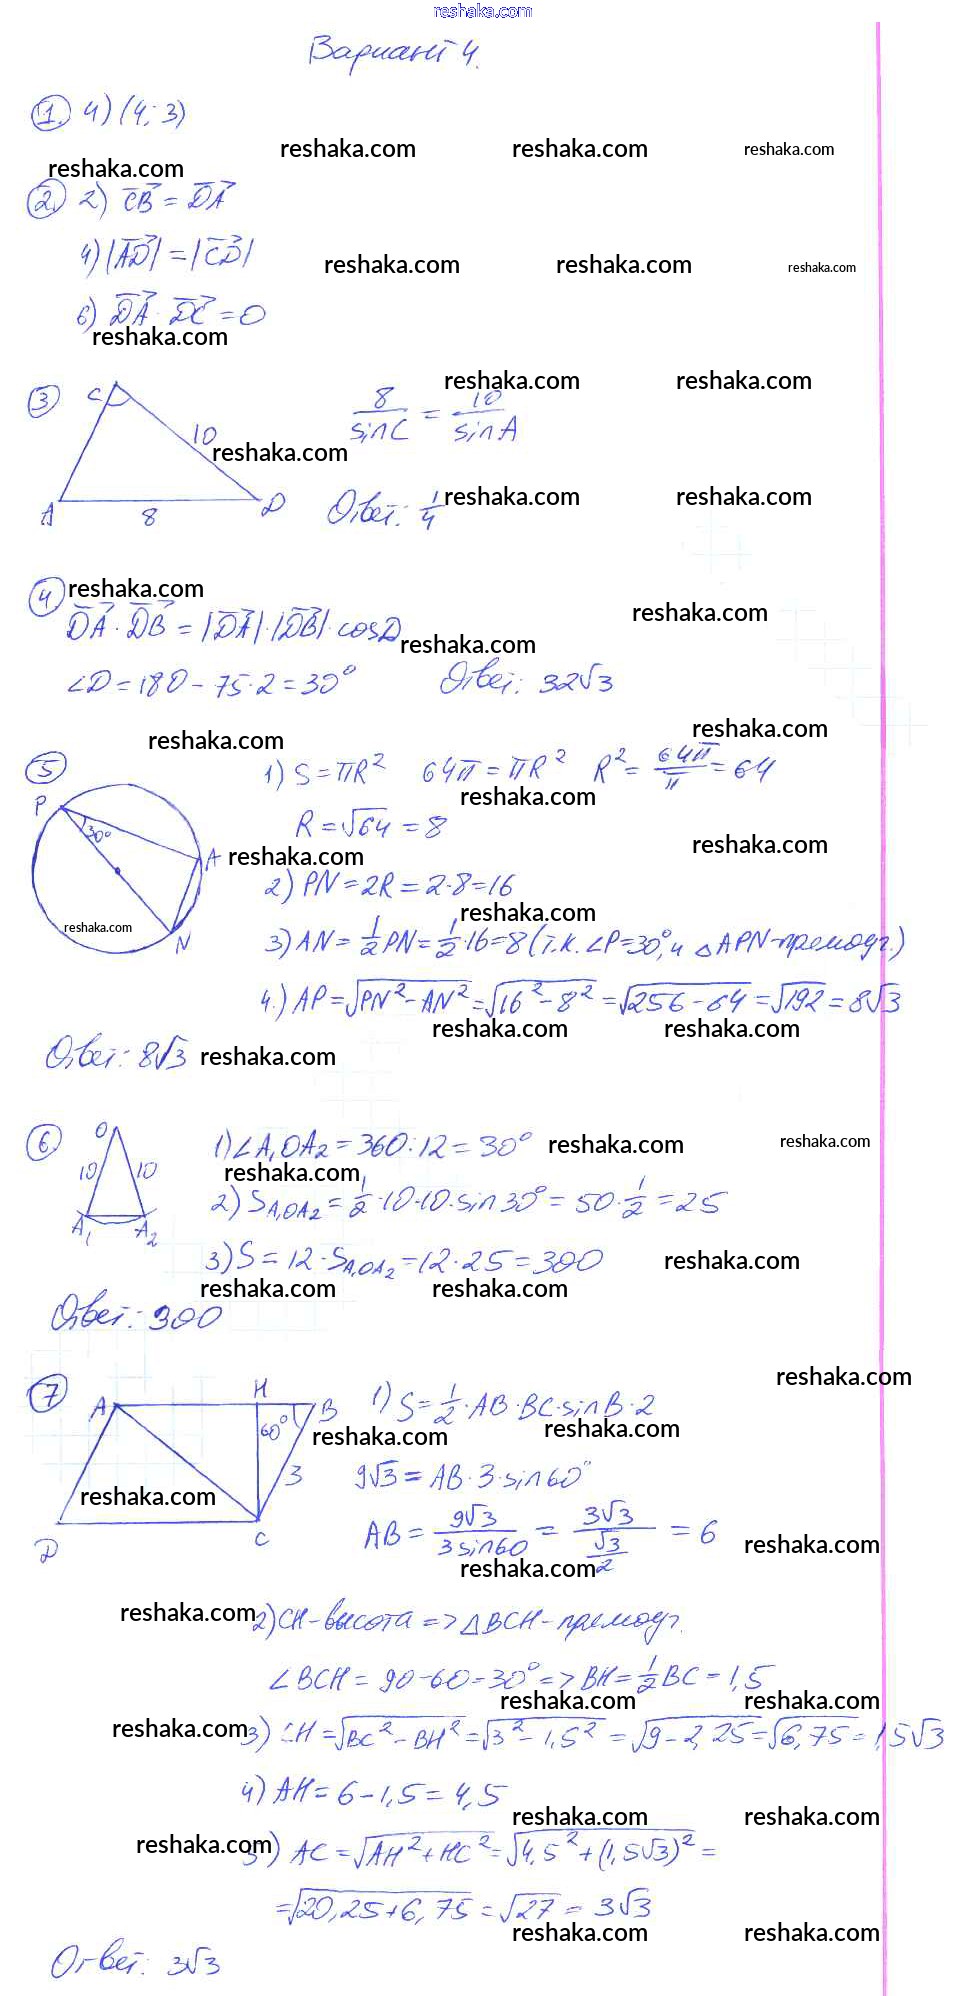 reshaka.com
Вариант 4.
1. 4) (4; 3)
reshaka.com reshaka.com reshaka.com
reshaka.com
2. 2) CB = DA
4) |AD| = |CD|
reshaka.com reshaka.com reshaka.com
6) DA · DC = 0
reshaka.com
reshaka.com reshaka.com
3 C 8/sinC = 10/sinA
10
reshaka.com
A 8 D Ответ: 1/4
reshaka.com reshaka.com
4 reshaka.com
reshaka.com
DA · DB = |DA| · |DB| · cosD
reshaka.com
∠D = 180 - 75·2 = 30° Ответ: 32√3
reshaka.com
reshaka.com
5 1) S = πR² 64π = πR² R² = 64π/π = 64
reshaka.com
P 30° A N
R = √64 = 8
reshaka.com reshaka.com
2) PN = 2R = 2·8 = 16
reshaka.com reshaka.com
3) AN = 1/2 PN = 1/2 · 16 = 8 (т.к. ∠P = 30°, и △APN - прямоуг.)
4.) AP = √(PN² - AN²) = √(16² - 8²) = √(256 - 64) = √192 = 8√3
reshaka.com reshaka.com
Ответ: 8√3 reshaka.com
6 O 10 10 A₁ A₂
1) ∠A₁OA₂ = 360 : 12 = 30° reshaka.com reshaka.com
reshaka.com
2) S A₁OA₂ = 1/2 · 10 · 10 · sin 30° = 50 · 1/2 = 25
3) S = 12 · S A₁OA₂ = 12 · 25 = 300 reshaka.com
reshaka.com reshaka.com
Ответ: 300
reshaka.com
7 A H B 60° 3 D C
1) S = 1/2 · AB · BC · sinB · 2
reshaka.com reshaka.com
9√3 = AB · 3 · sin60°
reshaka.com
AB = 9√3/3sin60 = 3√3/(√3/2) = 6
reshaka.com reshaka.com
reshaka.com
2) CH - высота => △BCH - прямоуг.
∠BCH = 90 - 60 = 30° => BH = 1/2 BC = 1,5
reshaka.com reshaka.com
reshaka.com
3) CH = √(BC² - BH²) = √(3² - 1,5²) = √(9 - 2,25) = √6,75 = 1,5√3
4) AH = 6 - 1,5 = 4,5
reshaka.com reshaka.com
reshaka.com
5) AC = √(AH² + HC²) = √(4,5² + (1,5√3)²) =
= √(20,25 + 6,75) = √27 = 3√3
reshaka.com reshaka.com
Ответ: 3√3